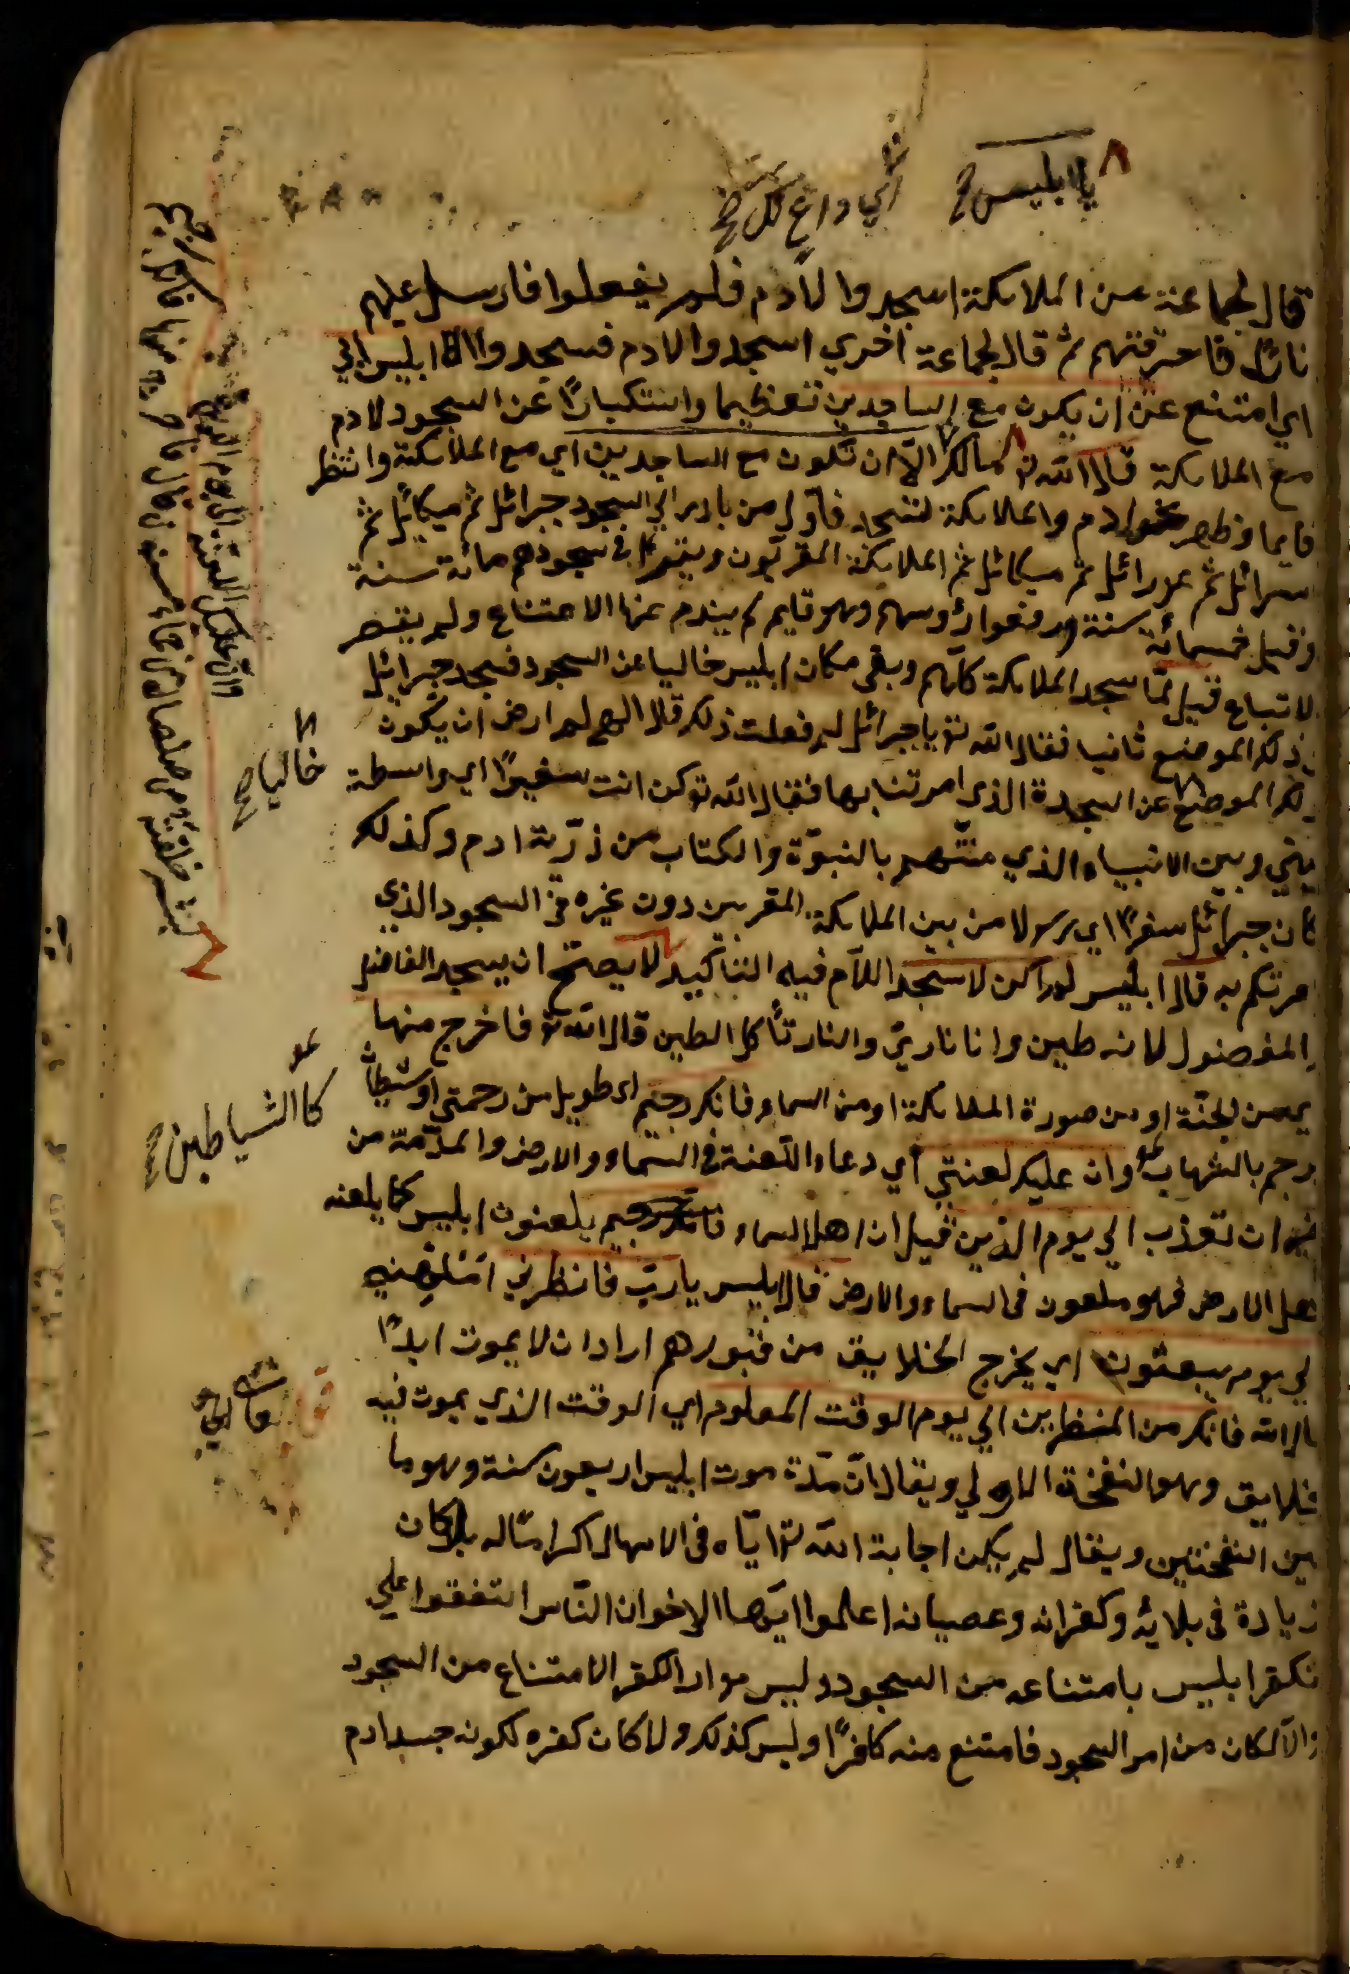 يا ابليس صح
اي داغ كل صح
قال لجماعة من الملائكة اسجدوا لآدم فلم يفعلوا فارسل عليهم
نارًا فاحرقتهم ثم قال لجماعة اخري اسجدوا لادم فسجدوا الا ابليس ابي
اي امتنع عن ان يكون مع الساجدين تعظيما واستكبارًا عن السجود لادم
مع الملائكة قال الله تع مالك الّا ان تكون مع الساجدين اي مع الملائكة وانتظر
قايما وظهر ادم والملائكة لتسجد فاول من بادر الي السجود جبرائل ثم ميكائل ثم
سرافل ثم عزرائل ثم ميكائل ثم الملائكة المقربون وبقوا في سجودهم مائة سنة
وقيل خمسمائة سنة ورفعوا رؤوسهم وهو قايم لم يندم عن الامتناع ولم يقصر
لاتباع قيل لمّا سجد الملائكة كلهم وبقي مكان ابليس خاليا عن السجود فسجد جبرائل
ذلك الموضع ثانيا فقال الله تع يا جبرائل لم فعلت ذلك قال الهي لم ارض ان يكون
لك الموضع عن السجدة الذي امرتنا بها فقال الله تع كن انت سفيرًا اي واسطة
بيني وبين الانبياء الذي منّتهم بالنبوّة والكتاب من ذرّية ادم وكذلك
كان جبرائل سفيرًا اي رسولا من بين الملائكة المقربين دون غيره في السجود الذي
مرتكم به قال ابليس لم اكن لاسجد اللام فيه التأكيد لا يصحّ ان يسجد الفاضل
المفضول لانه طين وانا ناريّ والنار تأكل الطين قال الله تع فاخرج منها
من الجنّة او من صورة الملائكة او من السماء فانك رجيم اي طويل من رحمتي او شيطان
رجم بالشهاب وان عليك لعنتي اي دعاء اللّعنة في السّماء والارض والمذمّة من
ان تعذب الي يوم الدّين قيل ان اهل السماء يلعنون ابليس كما يلعنه
اهل الارض فهو ملعون في السماء والارض قال ابليس يا ربّ فانظرني امهلني
الي يوم يبعثون اي يخرج الخلايق من قبورهم اراد ان لا يموت ابدًا
قال الله فانك من المنظرين الي يوم الوقت المعلوم اي الوقت الذي يموت فيه
خلايق وهو النفخة الاولي ويقال انّ مدّة موت ابليس اربعون سنة وهو ما
بين النفختين ويقال لم يكن اجابة الله تع ايّاه في الامهال اكرامًا له بل كان
زيادة في بلائه وكفرانه وعصيانه اعلموا ايّها الاخوان النّاس اتفقوا علي
كفر ابليس بامتناعه من السجود وليس مدار الكفر الامتناع من السجود
والّا لكان من امر السجود فامتنع منه كافرًا وليس كذلك ولا كان كفره لكون جسد ادم
خاليا صح
كالشياطين صح
تعالي